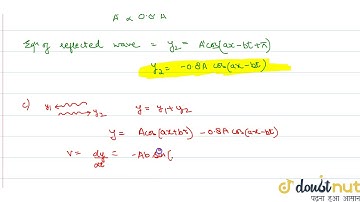 A ∝ 0.8 A
Eqn of reflected wave = y₂ = A'cos(ax-bt+π)
y₂ = -0.8A cos(ax-bt)
c) y₁ y₂ y = y₁+y₂
y = Acos(ax+bt) - 0.8A cos(ax-bt)
v = dy/dt = -Ab sin(
doubtnut
पढ़ना हुआ आसान